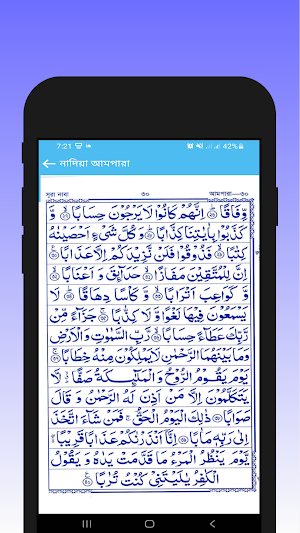 7:21 42%
নাদিয়া আমপারা
সূরা নাবা ৩০ আমপারা—৩০
وِّفَاقًا ۞ اِنَّهُمْ كَانُوْا لَا يَرْجُوْنَ حِسَابًا ۞ وَّ
كَذَّبُوْا بِاٰيٰتِنَا كِذَّابًا ۞ وَكُلَّ شَیْءٍ اَحْصَيْنٰهُ
كِتٰبًا ۞ فَذُوْقُوْا فَلَنْ نَّزِيْدَكُمْ اِلَّا عَذَابًا ۞
اِنَّ لِلْمُتَّقِيْنَ مَفَازًا ۞ حَدَآئِقَ وَ اَعْنَابًا ۞
وَّ كَوَاعِبَ اَتْرَابًا ۞ وَّ كَاْسًا دِهَاقًا ۞ لَا
يَسْمَعُوْنَ فِيْهَا لَغْوًا وَّ لَا كِذّٰبًا ۞ جَزَآءً مِّنْ
رَّبِّكَ عَطَآءً حِسَابًا ۞ رَّبِّ السَّمٰوٰتِ وَالْاَرْضِ
وَمَا بَيْنَهُمَا الرَّحْمٰنِ لَا يَمْلِكُوْنَ مِنْهُ خِطَابًا ۞
يَوْمَ يَقُوْمُ الرُّوْحُ وَ الْمَلٰٓئِكَةُ صَفًّا ۙ لَّا
يَتَكَلَّمُوْنَ اِلَّا مَنْ اَذِنَ لَهُ الرَّحْمٰنُ وَ قَالَ
صَوَابًا ۞ ذٰلِكَ الْيَوْمُ الْحَقُّ ۚ فَمَنْ شَآءَ اتَّخَذَ
اِلٰى رَبِّهٖ مَاٰبًا ۞ اِنَّآ اَنْذَرْنٰكُمْ عَذَابًا قَرِيْبًا ۚ
يَّوْمَ يَنْظُرُ الْمَرْءُ مَا قَدَّمَتْ يَدٰهُ وَ يَقُوْلُ
الْكٰفِرُ يٰلَيْتَنِیْ كُنْتُ تُرٰبًا ۞